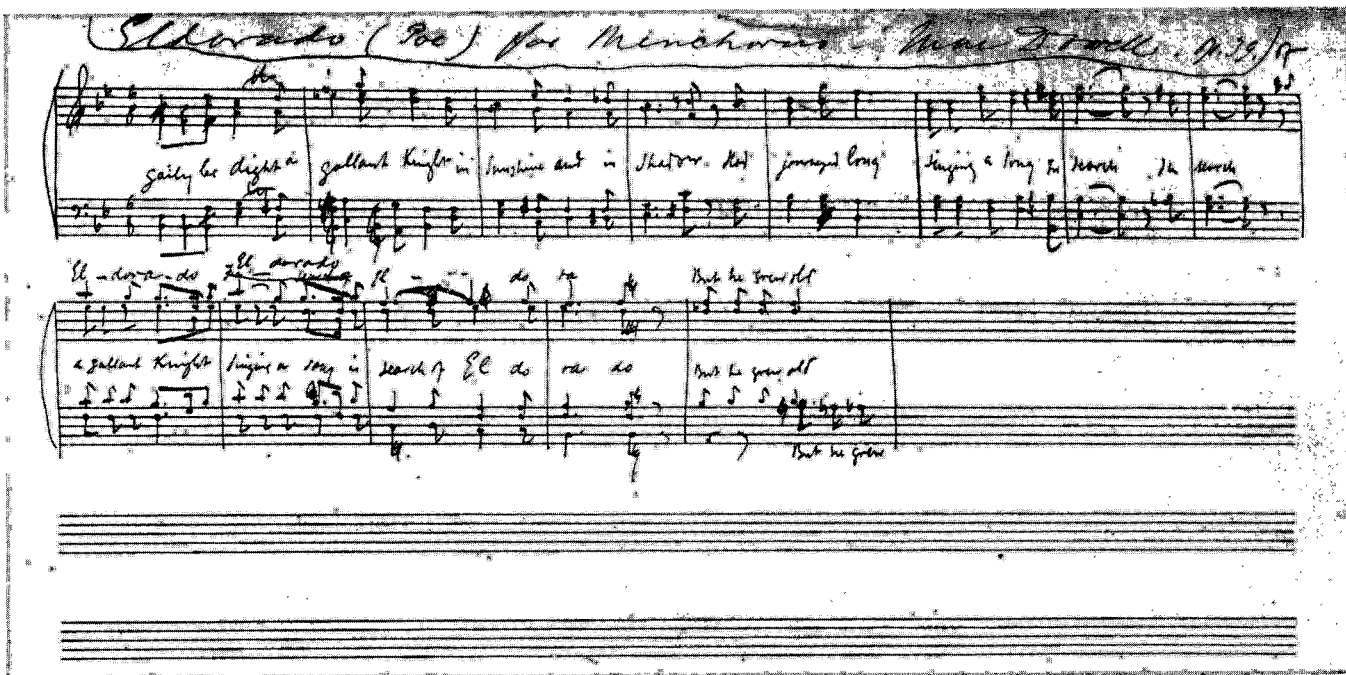 Eldorado (Poe) for Menchorus
gaily be dight a gallant Knight in Sunshine and in Shadow. Had journeyed long Singing a song In search In search
El - dora - do El dorado El - - - do ra
But he grew old
a gallant Knight singing a song in search of El do ra do But he grew old
But he grew